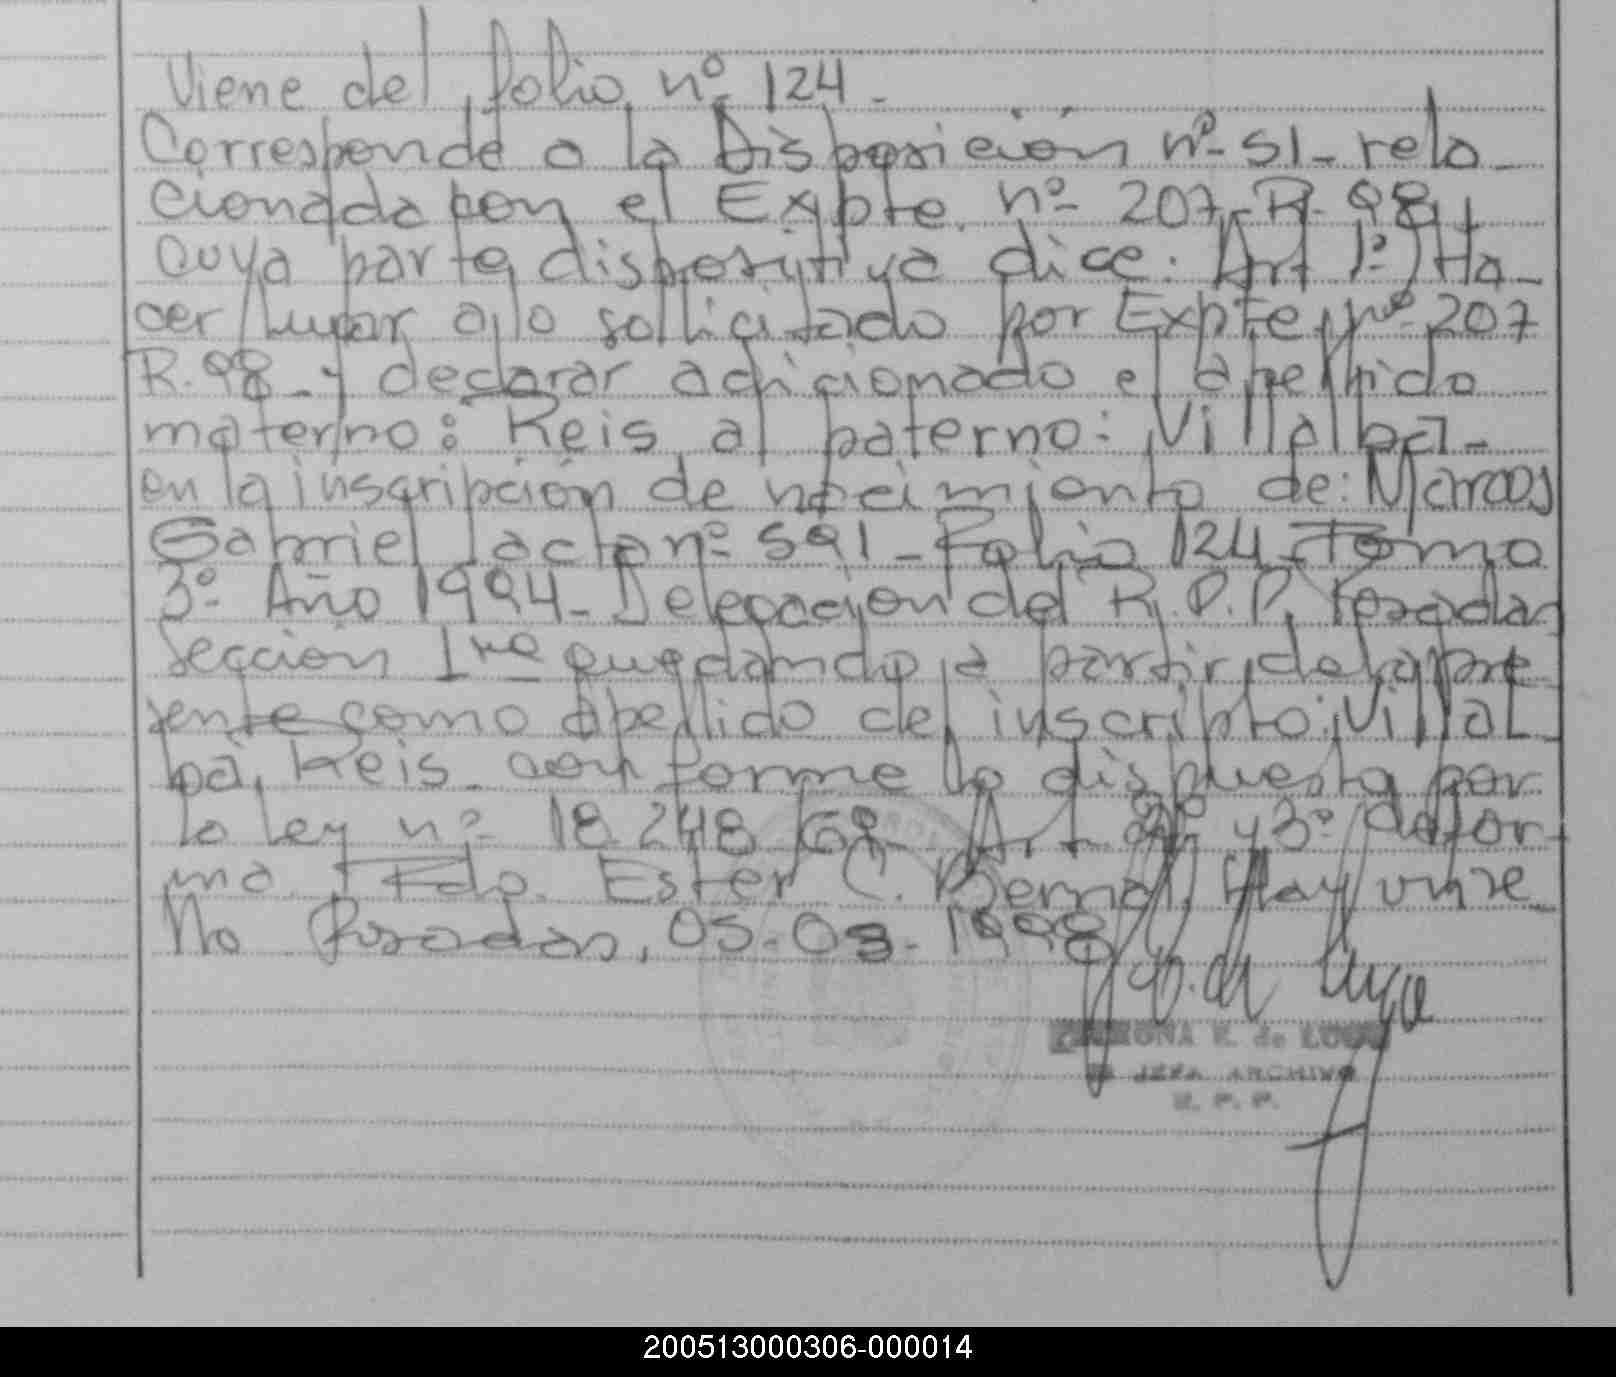 Viene del folio nº 124.
Corresponde a la Disposición nº 51- rela-
cionada con el Expte. nº 207-R-98
cuya parte dispositiva dice: Art 1º) Ha-
cer lugar a lo sollicitado por Expte nº 207
R.98- y declarar adicionado el apellido
materno: Reis al paterno: Villalba-
en la inscripción de nacimiento de: Marcos
Gabriel acta nº 591- Folio 124- Tomo
3º Año 1994- Delegación del R.P.P. Posadas
Sección 1ra quedando a partir de la pre
sente como apellido del inscripto: Villal-
ba, Reis- conforme lo dispuesto por
la ley nº 18.248/69- Art. 2º y 3º de for-
ma. Fdo. Ester C. Bernal. Hay un se-
llo Posadas, 05-03-1998
E. de LUGO
JEFA ARCHIVO
R. P. P.
200513000306-000014